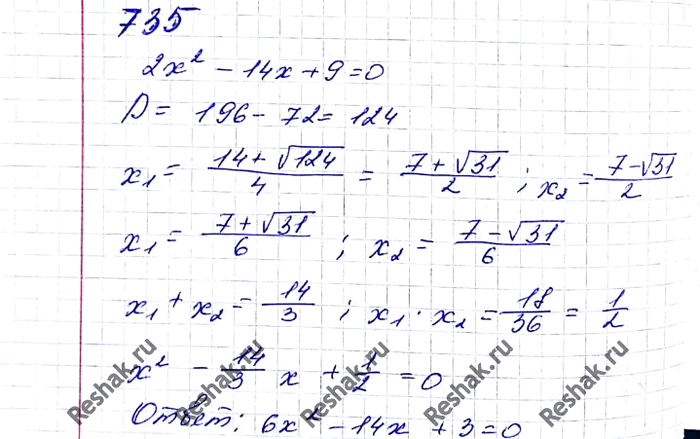 735
2x² - 14x + 9 = 0
D = 196 - 72 = 124
x₁ = (14 + √124)/4 = (7 + √31)/2 ; x₂ = (7 - √31)/2
x₁ = (7 + √31)/6 ; x₂ = (7 - √31)/6
x₁ + x₂ = 14/3 ; x₁ · x₂ = 18/36 = 1/2
x² - 14/3 x + 1/2 = 0
Ответ: 6x² - 14x + 3 = 0
Reshak.ru Reshak.ru Reshak.ru Reshak.ru